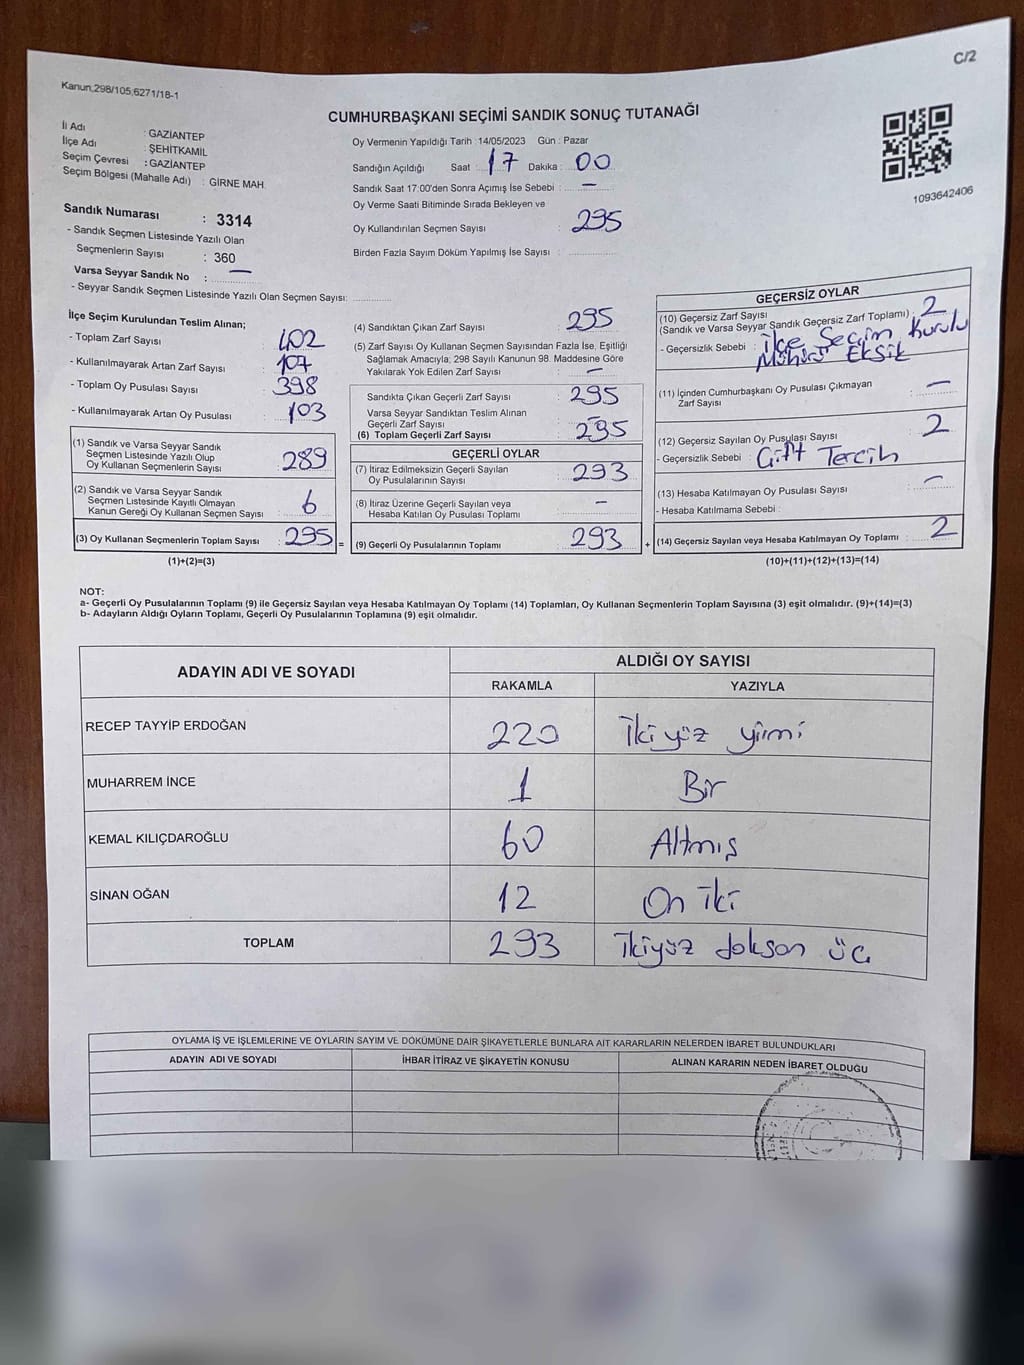 C/2
Kanun,298/105,6271/18-1
CUMHURBAŞKANI SEÇİMİ SANDIK SONUÇ TUTANAĞI
İl Adı : GAZİANTEP
İlçe Adı : ŞEHİTKAMİL
Seçim Çevresi : GAZİANTEP
Seçim Bölgesi (Mahalle Adı) : GİRNE MAH.
Sandık Numarası : 3314
- Sandık Seçmen Listesinde Yazılı Olan
Seçmenlerin Sayısı : 360
Varsa Seyyar Sandık No : —
- Seyyar Sandık Seçmen Listesinde Yazılı Olan Seçmen Sayısı: ..............
Oy Vermenin Yapıldığı Tarih : 14/05/2023 Gün : Pazar
Sandığın Açıldığı Saat : 17 Dakika : 00
Sandık Saat 17:00'den Sonra Açımış İse Sebebi : —
Oy Verme Saati Bitiminde Sırada Bekleyen ve
Oy Kullandırılan Seçmen Sayısı : 295
Birden Fazla Sayım Döküm Yapılmış İse Sayısı : ..............
1093642406
İlçe Seçim Kurulundan Teslim Alınan;
- Toplam Zarf Sayısı : 402
- Kullanılmayarak Artan Zarf Sayısı : 107
- Toplam Oy Pusulası Sayısı : 398
- Kullanılmayarak Artan Oy Pusulası : 103
(1) Sandık ve Varsa Seyyar Sandık
Seçmen Listesinde Yazılı Olup
Oy Kullanan Seçmenlerin Sayısı : 289
(2) Sandık ve Varsa Seyyar Sandık
Seçmen Listesinde Kayıtlı Olmayan
Kanun Gereği Oy Kullanan Seçmen Sayısı : 6
(3) Oy Kullanan Seçmenlerin Toplam Sayısı : 295 =
(1)+(2)=(3)
(4) Sandıktan Çıkan Zarf Sayısı : 295
(5) Zarf Sayısı Oy Kullanan Seçmen Sayısından Fazla İse, Eşitliği
Sağlamak Amacıyla; 298 Sayılı Kanunun 98. Maddesine Göre
Yakılarak Yok Edilen Zarf Sayısı : —
Sandıkta Çıkan Geçerli Zarf Sayısı : 295
Varsa Seyyar Sandıktan Teslim Alınan
Geçerli Zarf Sayısı : —
(6) Toplam Geçerli Zarf Sayısı : 295
GEÇERLİ OYLAR
(7) İtiraz Edilmeksizin Geçerli Sayılan
Oy Pusulalarının Sayısı : 293
(8) İtiraz Üzerine Geçerli Sayılan veya
Hesaba Katılan Oy Pusulası Toplamı : —
(9) Geçerli Oy Pusulalarının Toplamı : 293 +
GEÇERSİZ OYLAR
(10) Geçersiz Zarf Sayısı
(Sandık ve Varsa Seyyar Sandık Geçersiz Zarf Toplamı) : 2
- Geçersizlik Sebebi : İlçe Seçim Kurulu
Mührü Eksik
(11) İçinden Cumhurbaşkanı Oy Pusulası Çıkmayan
Zarf Sayısı : —
(12) Geçersiz Sayılan Oy Pusulası Sayısı : 2
- Geçersizlik Sebebi : Çift Tercih
(13) Hesaba Katılmayan Oy Pusulası Sayısı : —
- Hesaba Katılmama Sebebi :
(14) Geçersiz Sayılan veya Hesaba Katılmayan Oy Toplamı : 2
(10)+(11)+(12)+(13)=(14)
NOT:
a- Geçerli Oy Pusulalarının Toplamı (9) ile Geçersiz Sayılan veya Hesaba Katılmayan Oy Toplamı (14) Toplamları, Oy Kullanan Seçmenlerin Toplam Sayısına (3) eşit olmalıdır. (9)+(14)=(3)
b- Adayların Aldığı Oyların Toplamı, Geçerli Oy Pusulalarının Toplamına (9) eşit olmalıdır.
ADAYIN ADI VE SOYADI ALDIĞI OY SAYISI
RAKAMLA YAZIYLA
RECEP TAYYİP ERDOĞAN 220 İkiyüz yiimi
MUHARREM İNCE 1 Bir
KEMAL KILIÇDAROĞLU 60 Altmış
SİNAN OĞAN 12 On iki
TOPLAM 293 İkiyüz doksan üç
OYLAMA İŞ VE İŞLEMLERİNE VE OYLARIN SAYIM VE DÖKÜMÜNE DAİR ŞİKAYETLERLE BUNLARA AİT KARARLARIN NELERDEN İBARET BULUNDUKLARI
ADAYIN ADI VE SOYADI İHBAR İTİRAZ VE ŞİKAYETİN KONUSU ALINAN KARARIN NEDEN İBARET OLDUĞU